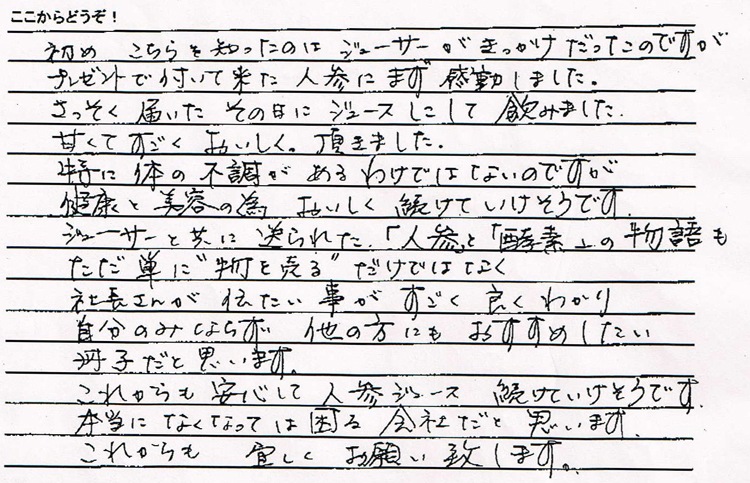 ここからどうぞ！
初め こちらを知ったのは ジューサーがきっかけだったのですが
プレゼントで付いて来た 人参にまず 感動しました。
さっそく 届いた その日に ジュースしこして 飲みました。
甘くて すごく おいしく。頂きました。
特に 体の 不調が ある わけでは ないのですが
健康と 美容の為 おいしく 続けていけそうです。
ジューサーと共に 送られた 「人参」と「酵素」の 物語も
ただ 単に "物を売る" だけではなく
社長さんが 伝たい 事が すごく 良く わかり
自分のみならず 他の方にも おすすめしたい
冊子だと 思います。
これからも 安心して 人参ジュース 続けていけそうです。
本当に なくなっては 困る 会社だと 思います。
これからも 宜しく お願い 致します。